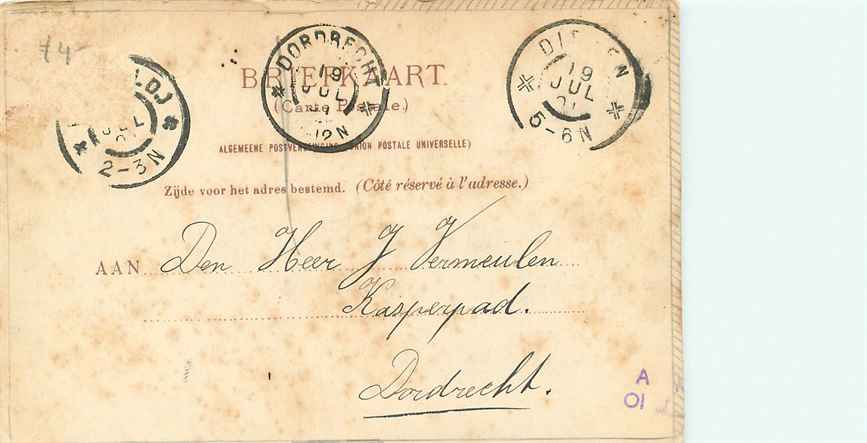 74
DORDRECHT
19
JUL
12N
19
JUL
5-6N
JUL
2-3N
BRIEFKAART.
(Carte Postale.)
ALGEMEENE POSTVEREENIGING (UNION POSTALE UNIVERSELLE)
Zijde voor het adres bestemd. (Côté réservé à l'adresse.)
AAN Den Heer J Vermeulen
Kasperpad.
Dordrecht.
A
01